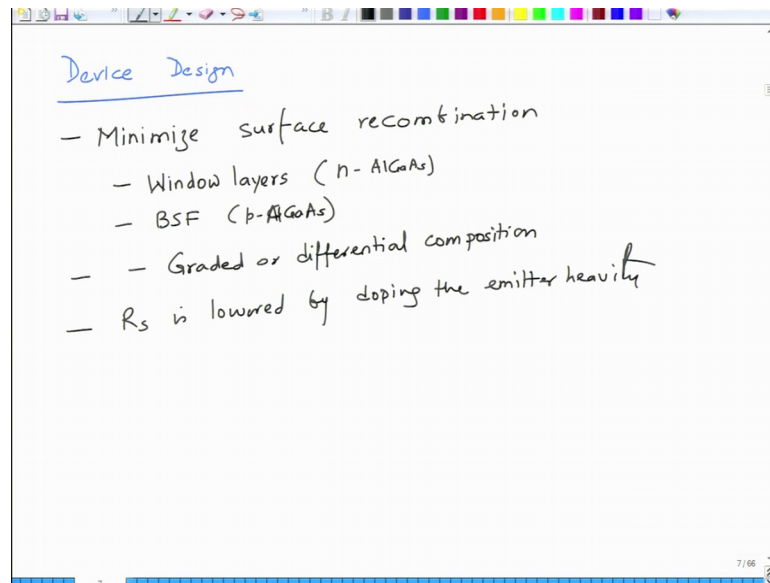 Device Design
— Minimize surface recombination
— Window layers (n-AlGaAs)
— BSF (p-AlGaAs)
— — Graded or differential composition
— Rs is lowered by doping the emitter heavily
7/66